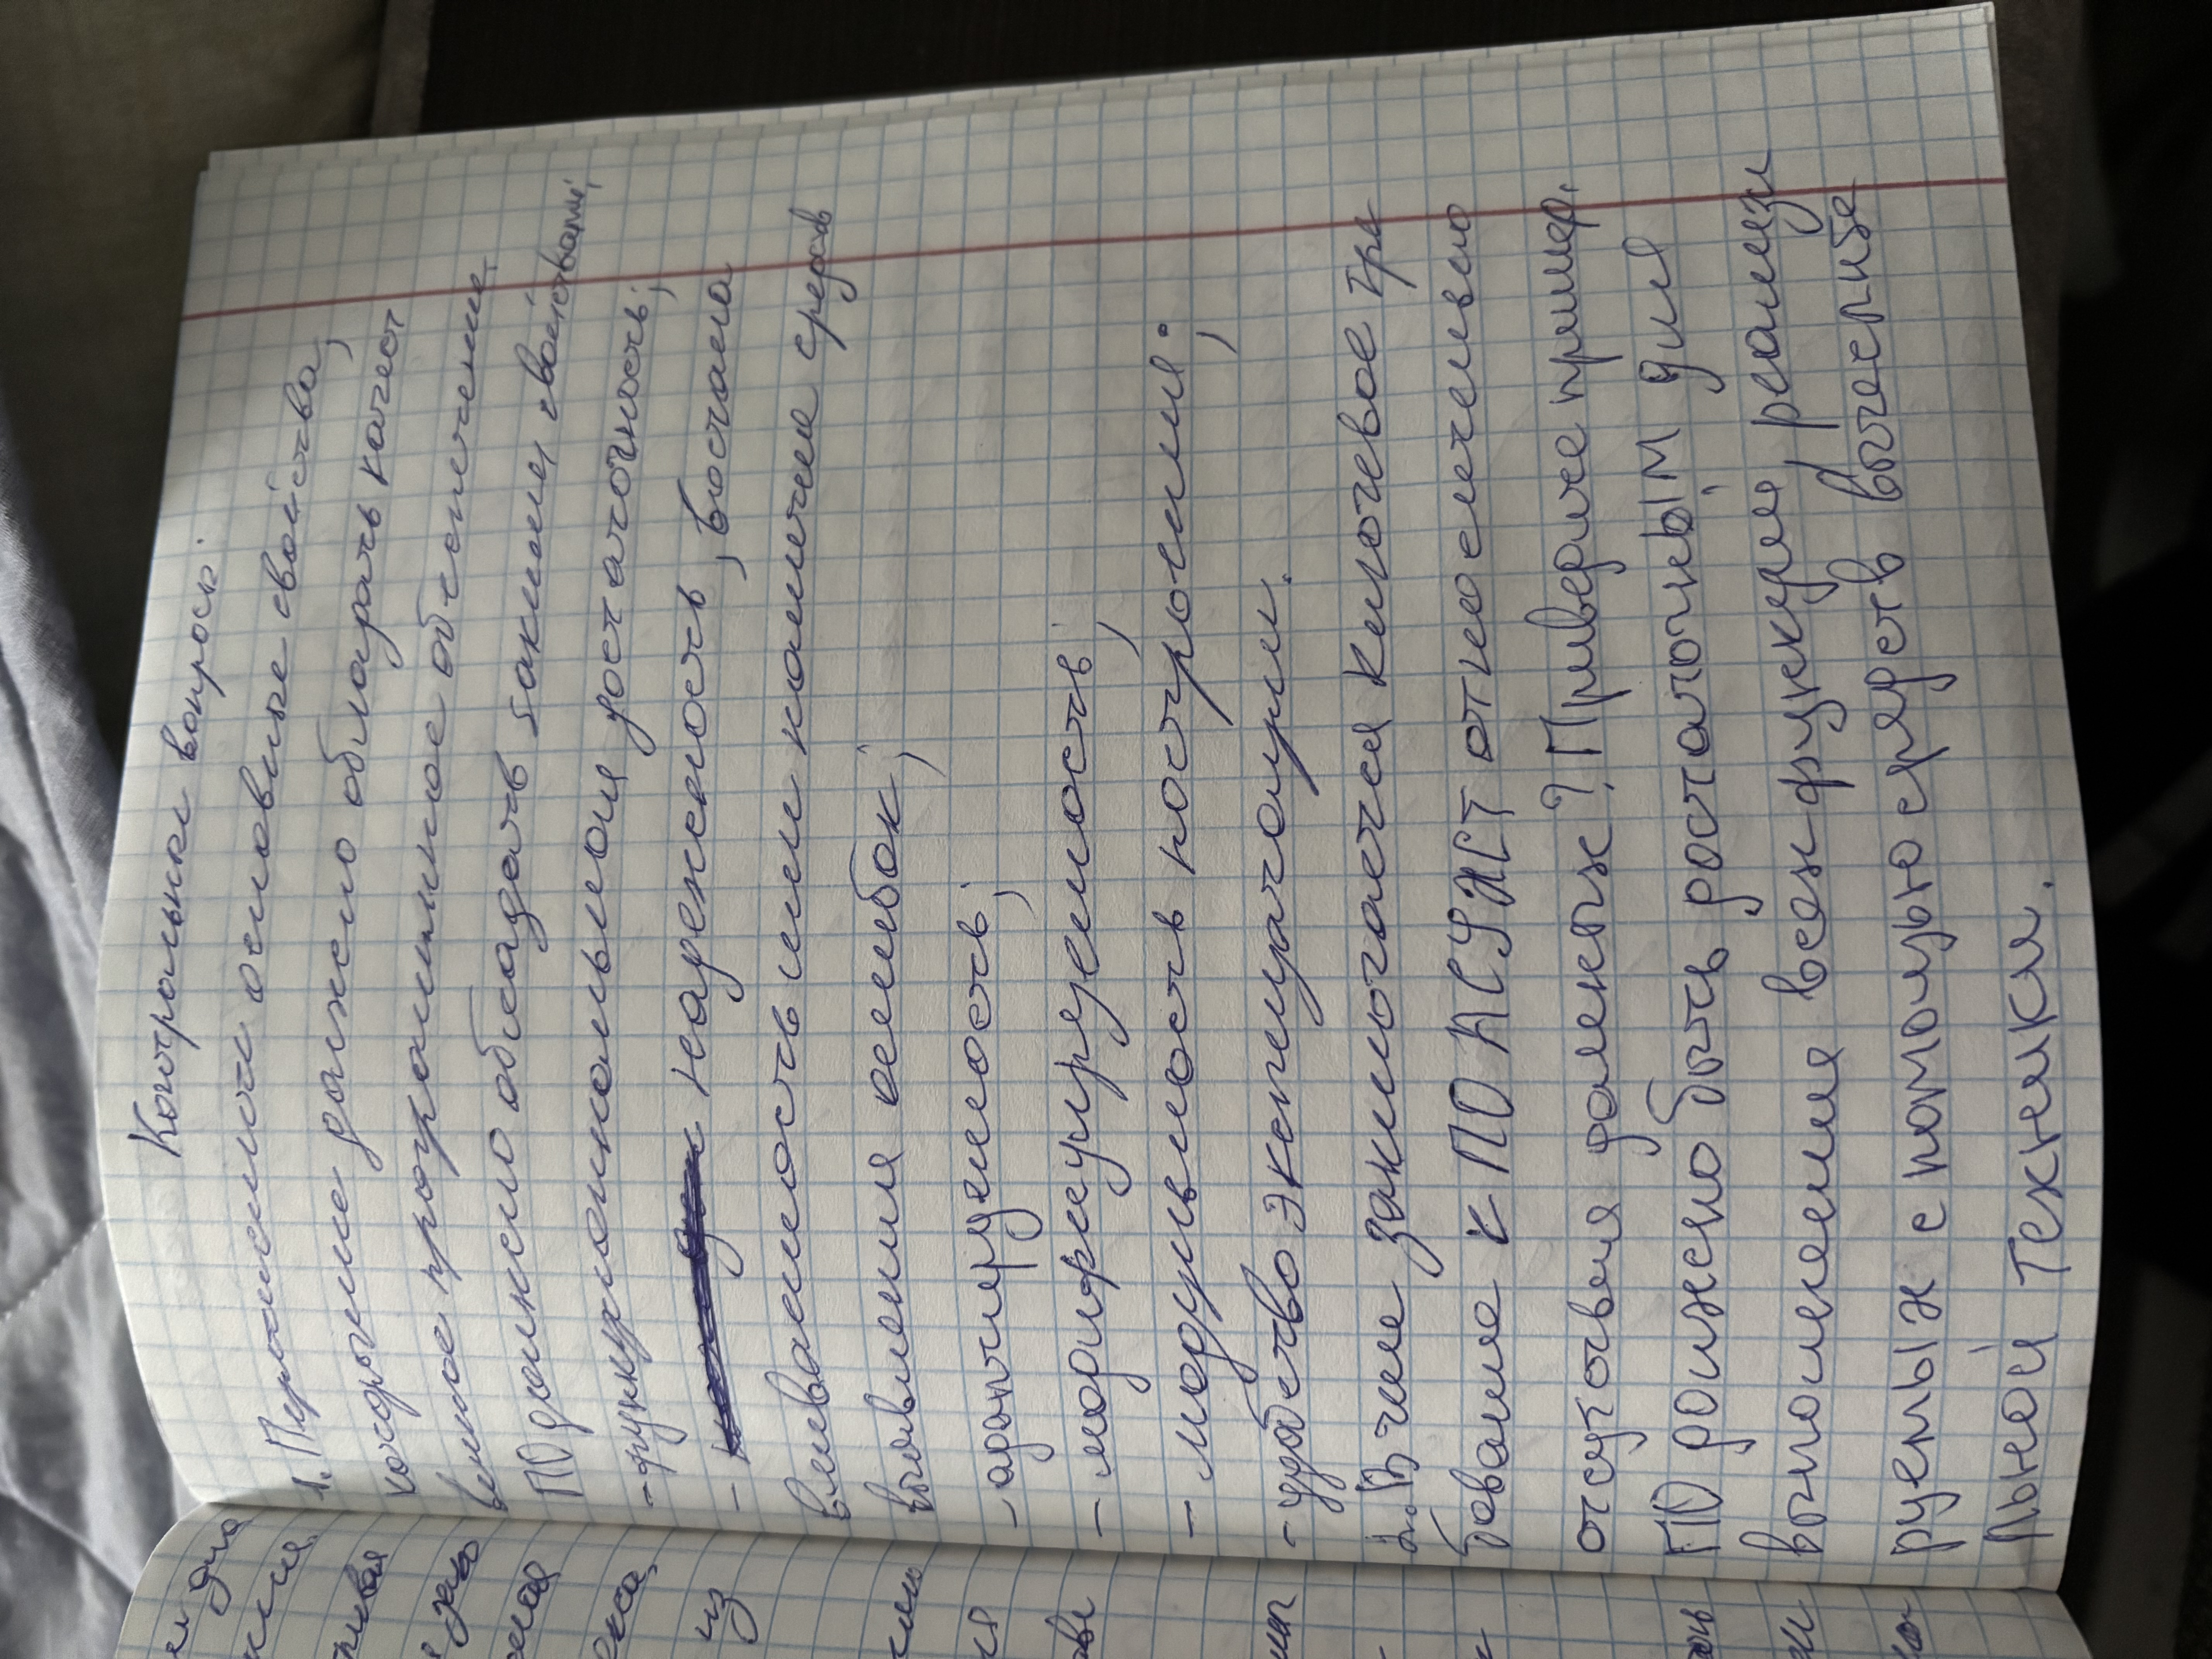 Контрольные вопросы:
1. Перечислите основные свойства,
которыми должно обладать качест
венное программное обеспечение.
ПО должно обладать такими свойствами;
-функциональная достаточность;
- надежность, восстана
вливаемость или наличие средств
выявления ошибок;
- адаптируемость;
- модифицируемость;
- модульность построения;
-удобство эксплуатации.
2. В чем заключается ключевое тре
бование к ПО АСУЖТ относительно
отсутствия должных? Приведите пример.
ПО должно быть достаточным для
выполнения всех функций, реализу
руемых с помощью средств вычеслите
льной техники.
из